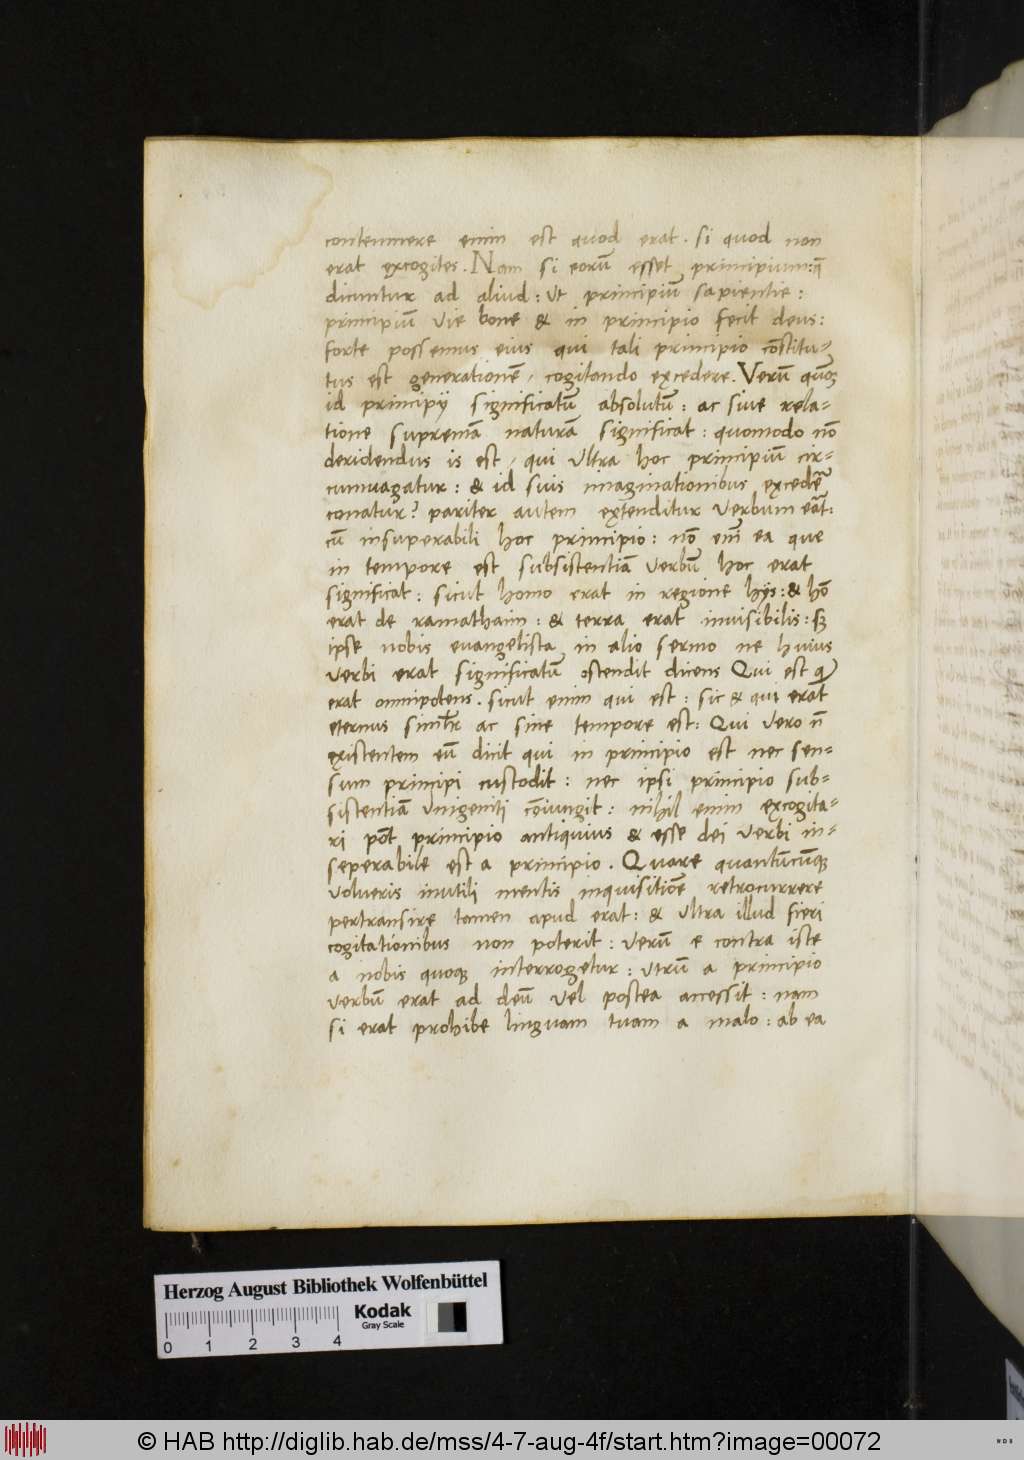 contemnere enim est quod erat. si quod non
erat excogites. Nam si eorū esset principium: q̄
dicuntur ad aliud: ut principiū sapientie:
principiū vie bone & in principio fecit deus:
forte possemus eius qui tali principio cōstitu-
tus est generationē, cogitando excedere. Verū quoq
id principij significatū absolutū: ac sive rela-
tione supremā naturā significat: quomodo nō
deridendus is est, qui ultra hoc principiū cir-
cumvagatur: & id suis imaginationibus excedē
conatur? pariter autem extenditur verbum erāt:
cū insuperabili hoc principio: nō enī ea que
in tempore est subsistentiā verbū hoc erat
significat: sicut homo erat in regione hijs: & hō
erat de ramathaim: & terra erat invisibilis: sꝫ
ipse nobis evangelista in alio sermo ne huius
verbi erat significatū ostendit dicens Qui est &
erat omnipotens. sicut enim qui est: sic & qui erat
eternus simlr ac sine tempore est: Qui vero n̄
existentem eū dicit qui in principio est nec sen-
sum principi custodit: nec ipsi principio sub-
sistentiā Unigeniti cōiungit: nihil enim excogita-
ri pōt principio antiquius & esse dei verbi in-
seperabile est a principio. Quare quantūcūqꝫ
volueris inutili mentis inquisitiōe retrocurrere
pertransire tamen apud erat: & ultra illud fieri
cogitationibus non poterit: verū e contra iste
a nobis quoqꝫ interrogetur: utrū a principio
verbū erat ad deū vel postea accessit: nam
si erat prohibe linguam tuam a malo: ab ea
Herzog August Bibliothek Wolfenbüttel
Kodak
Gray Scale
0 1 2 3 4
© HAB http://diglib.hab.de/mss/4-7-aug-4f/start.htm?image=00072